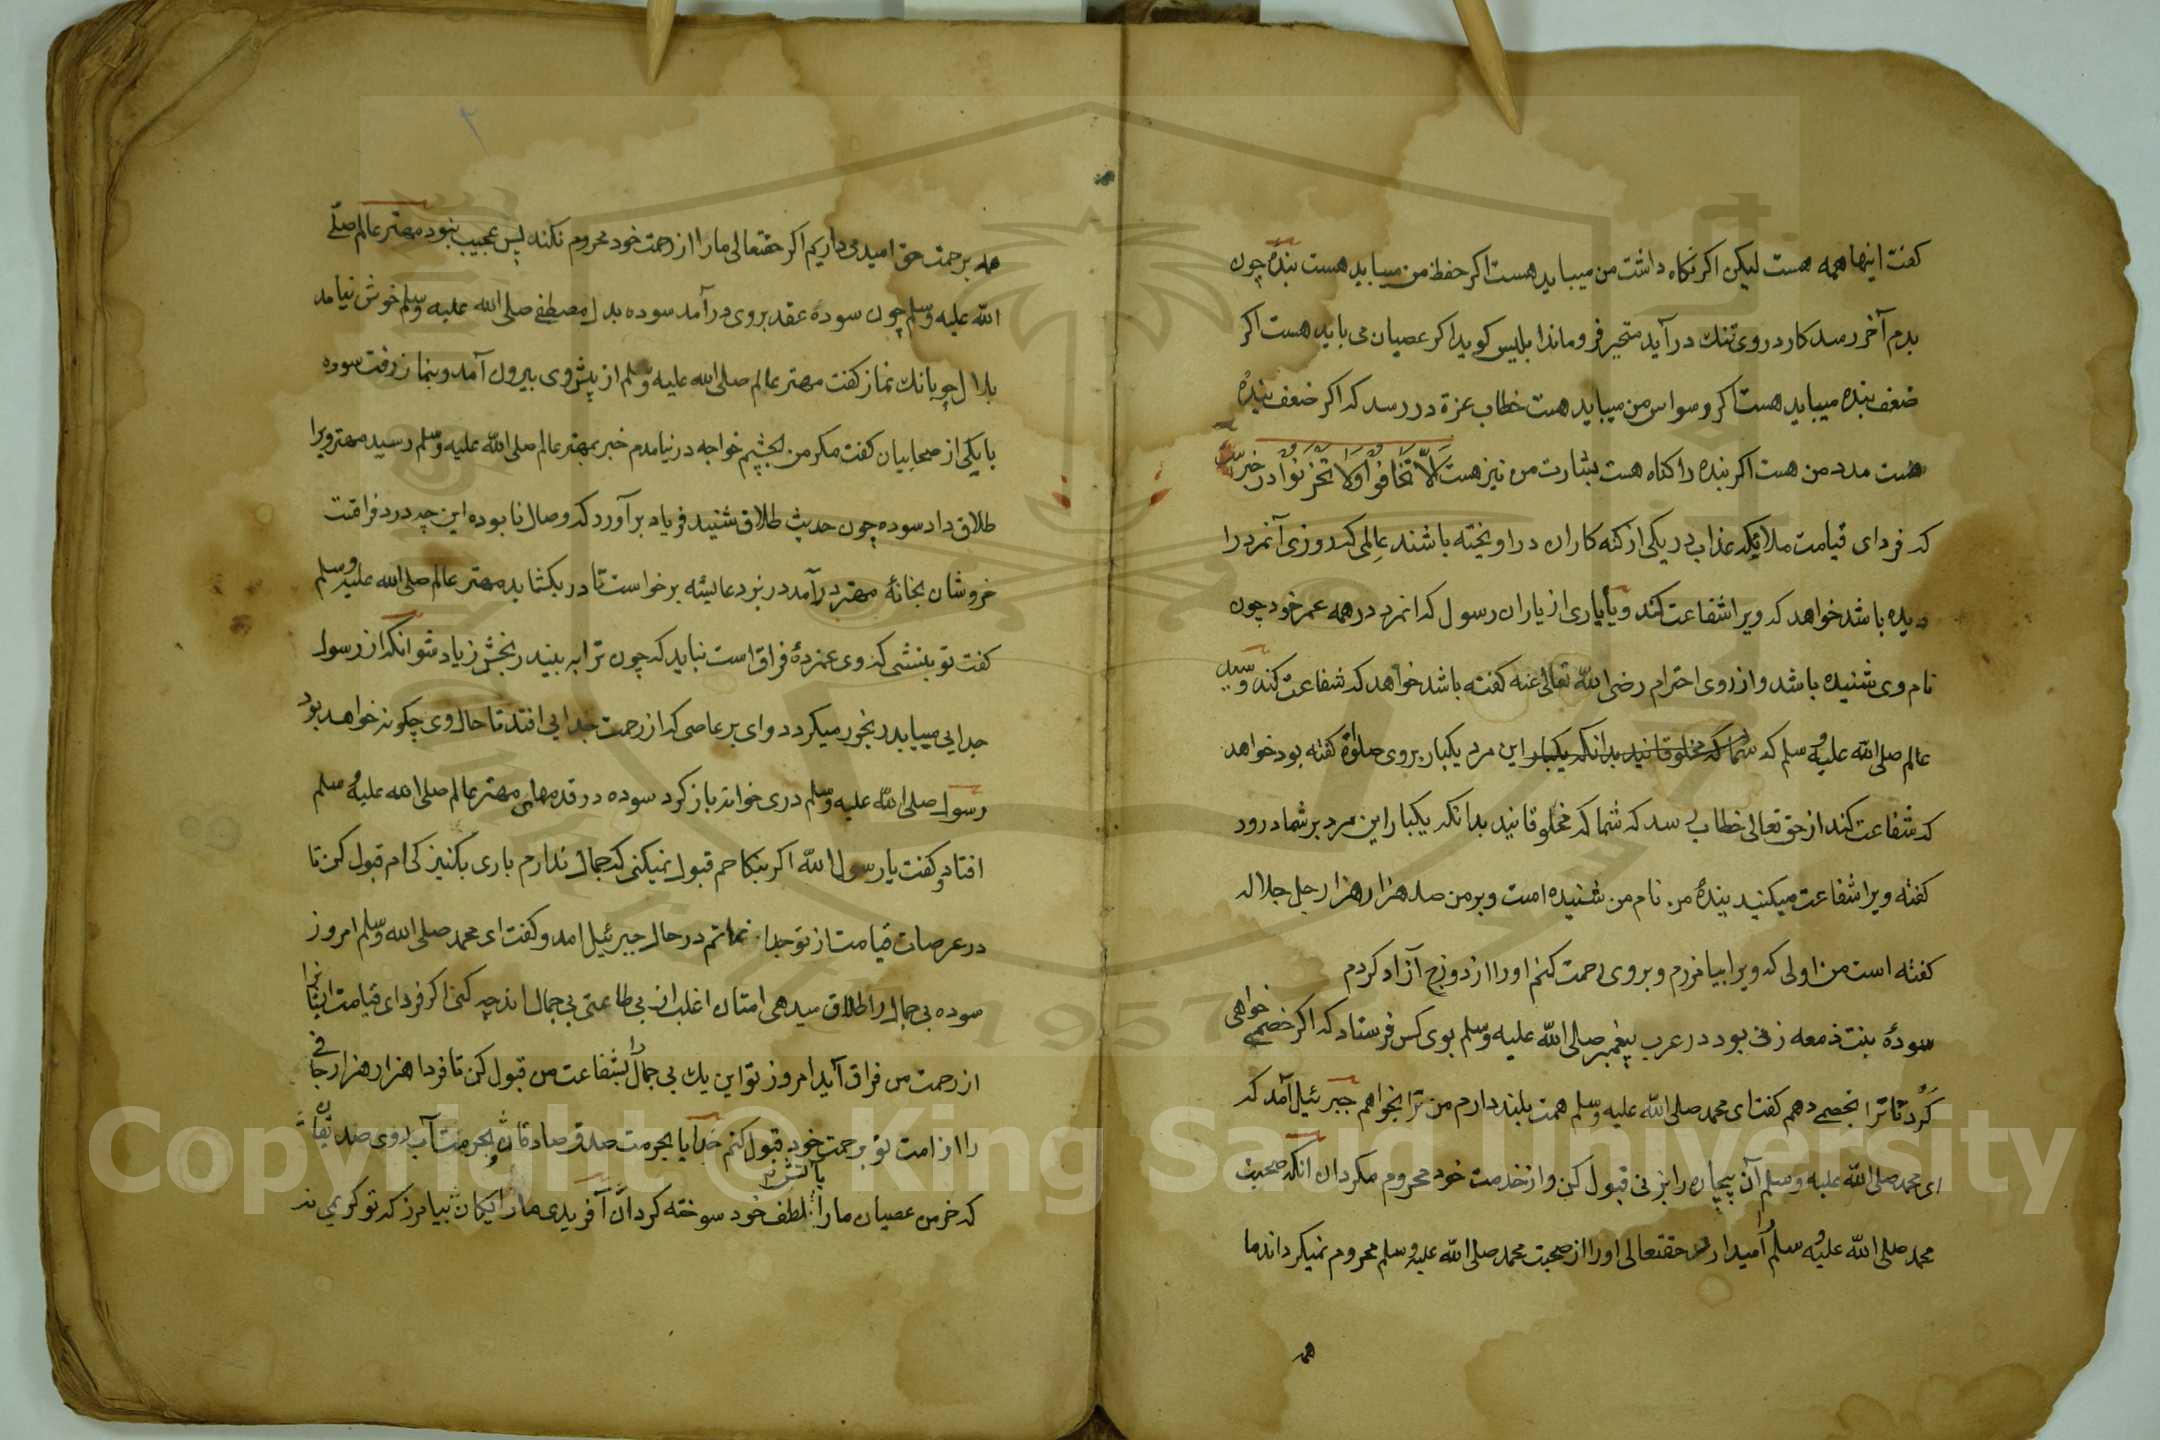 كفت اينها همه هست ليكن اكر نكاه داشت من ميبايد هست اكر حفظ من ميبايد هست بنده چون
بدم آخر رسد كار دروى تنك درآيد متحير فروماند ابليس كويد اكر عصيان مى بايد هست اكر
ضعف بنده ميبايد هست اكر وسواس من ميبايد هست خطاب عزة در رسد كه اكر ضعف بنده
هست مدد من هست اكر بنده را كناه هست بشارت من نيز هست اَلَّا تَخَافُوْا وَلَا تَحْزَنُوْا در خبر
كه فرداى قيامت ملائكه عذاب در يكى از كنه كاران دراويخته باشند عالمى كه روزى آنمرد را
ديده باشد خواهد كه ويرا شفاعت كند ويا يارى از ياران رسول كه انمرد در همه عمر خود چون
نام وى شنيده باشد و از روى احترام رضى الله تعالى عنه كفته باشد خواهد كه شفاعت كند و سيد
عالم صلى الله عليه وسلم كه شما كه مخلوقانيد بدانكه يكبار اين مرد يكبار بروى صلوة كفته بود خواهد
كه شفاعت كند از حق تعالى خطاب رسد كه شما كه مخلوقانيد بدانكه يكبار اين مرد بر شما درود
كفته ويرا شفاعت ميكنيد بندهٔ من نام من شنيده است و بر من صد هزار هزار جل جلاله
كفته است من اولى كه ويرا بيامرزم و بروى رحمت كنم اورا از دوزخ آزاد كردم
سودهٔ بنت ذمعه زنى بود در عرب پيغمبر صلى الله عليه وسلم بوى كس فرستاد كه اكر خصمى خواهى
كرد تا ترا بخصمى دهم كفت اى محمد صلى الله عليه وسلم همت بلند دارم من ترا بخواهم جبرئيل آمد كه
اى محمد صلى الله عليه وسلم آن بيچاره را بزنى قبول كن و از خدمت خود محروم مكردان انكه صحبت
محمد صلى الله عليه وسلم اميدارد حقتعالى اورا از صحبت محمد صلى الله عليه وسلم محروم نميكرداند ما
همه
همه برحمت حق اميد مى داريم اكر حقتعالى مارا از رحمت خود محروم نكند پس عجيب نبود مهتر عالم صلى
الله عليه وسلم چون سوده عقد بروى درآمد سوده بدل مصطفى صلى الله عليه وسلم خوش نيامد
بلال چو بانك نماز كفت مهتر عالم صلى الله عليه وسلم از پيش وى بيرون آمد و بنماز رفت سوده
با يكى از صحابيان كفت مكر من بچشم خواجه درنيامدم خبر بمهتر عالم صلى الله عليه وسلم رسيد مهتر ويرا
طلاق داد سوده چون حديث طلاق شنيد فرياد برآورد كه وصال نابوده اين چه درد فراقت
خروشان بخانهٔ مهتر درآمد در بزد عايشه برخواست تا در بكشايد مهتر عالم صلى الله عليه وسلم
كفت تو بنشين كه وى غمزدهٔ فراق است نبايد كه چون ترا به بيند رنجش زياد شو انكه از رسول
جدايى ميبايد رنجور ميكردد واى بر عاصى كه از رحمت جدايى افتد تا حال وى چكونه خواهد بود
رسول صلى الله عليه وسلم درى خوانه باز كرد سوده در قدمهاى مهتر عالم صلى الله عليه وسلم
افتاد و كفت يا رسول الله اكر بنكاحم قبول نميكنى كه جمال ندارم بارى بكنيزكى ام قبول كن تا
در عرصات قيامت از تو جدا نمانم در حال جبرئيل امد و كفت اى محمد صلى الله وسلم امروز
سوده بى جمال را طلاق ميدهى امتان اغلب ان بى طاعتى بى جمال اند چه كنى اكر فرداى قيامت ايشانرا
از رحمت من فراق آيد امروز تو اين يك بى جمال را بشفاعت من قبول كن تا فردا هزار هزار جافى
را از امت تو برحمت خود قبول كنم خدايا بحرمت صدق صادقان و بحرمت آب روى صد
كه خرمن عصيان مارا بآتش لطف خود سوخته كردان آفريدى مارا بيامرز كه تو كريمى
Copyright © King Saud University
1957